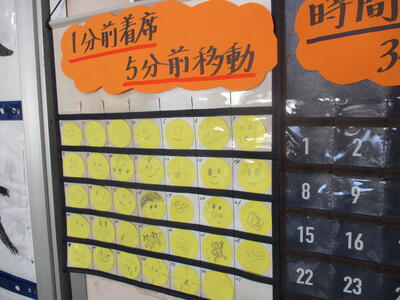 1分前着席
5分前移動
時間
3
1 2
8 9
15 16
22 23